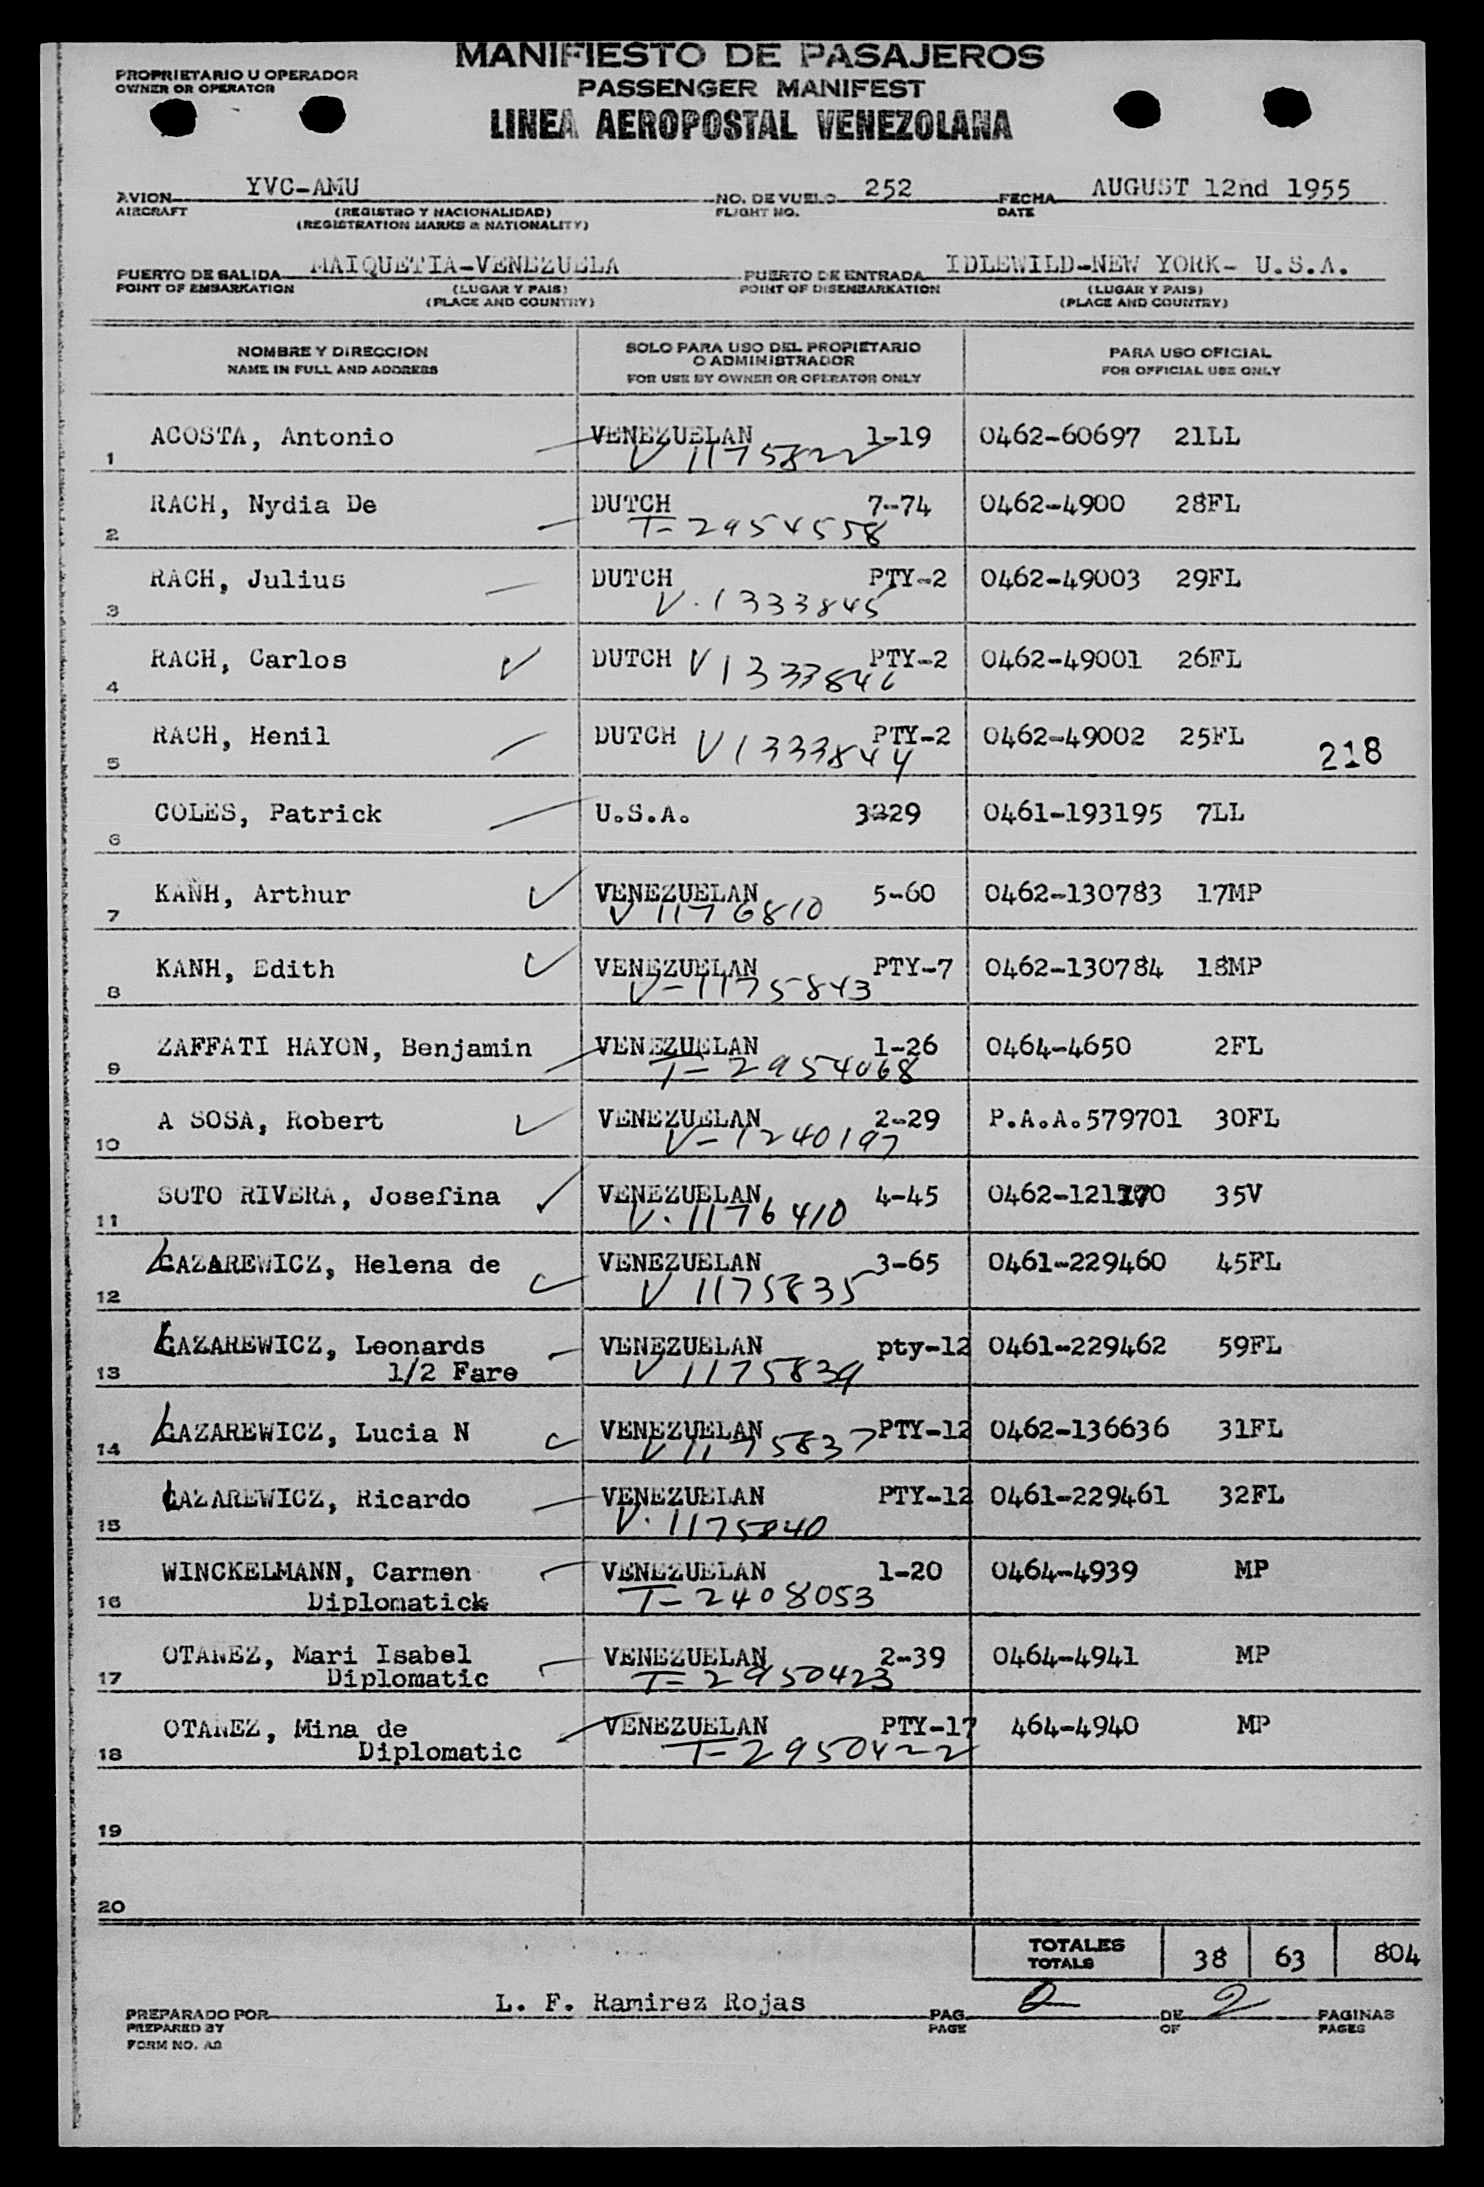 MANIFIESTO DE PASAJEROS
PROPRIETARIO U OPERADOR
OWNER OR OPERATOR
PASSENGER MANIFEST
LINEA AEROPOSTAL VENEZOLANA
AVION YVC-AMU NO. DE VUELO 252 FECHA AUGUST 12nd 1955
AIRCRAFT (REGISTRO Y NACIONALIDAD) FLIGHT NO. DATE
(REGISTRATION MARKS & NATIONALITY)
PUERTO DE SALIDA MAIQUETIA-VENEZUELA PUERTO DE ENTRADA IDLEWILD-NEW YORK- U.S.A.
POINT OF EMBARKATION (LUGAR Y PAIS) POINT OF DISEMBARKATION (LUGAR Y PAIS)
(PLACE AND COUNTRY) (PLACE AND COUNTRY)
NOMBRE Y DIRECCION SOLO PARA USO DEL PROPIETARIO O ADMINISTRADOR PARA USO OFICIAL
NAME IN FULL AND ADDRESS FOR USE BY OWNER OR OPERATOR ONLY FOR OFFICIAL USE ONLY
1 ACOSTA, Antonio VENEZUELAN 1-19 0462-60697 21LL
V 1175822
2 RACH, Nydia De DUTCH 7-74 0462-4900 28FL
T-2954558
3 RACH, Julius DUTCH PTY-2 0462-49003 29FL
V.1333845
4 RACH, Carlos DUTCH V1333846 PTY-2 0462-49001 26FL
5 RACH, Henil DUTCH V1333844 PTY-2 0462-49002 25FL
218
6 COLES, Patrick U.S.A. 3-29 0461-193195 7LL
7 KANH, Arthur VENEZUELAN 5-60 0462-130783 17MP
V 1176810
8 KANH, Edith VENEZUELAN PTY-7 0462-130784 18MP
V-1175843
9 ZAFFATI HAYON, Benjamin VENEZUELAN 1-26 0464-4650 2FL
T-2954068
10 A SOSA, Robert VENEZUELAN 2-29 P.A.A.579701 30FL
V-1240197
11 SOTO RIVERA, Josefina VENEZUELAN 4-45 0462-121170 35V
V.1176410
12 LAZAREWICZ, Helena de VENEZUELAN 3-65 0461-229460 45FL
V 1175835
13 LAZAREWICZ, Leonards VENEZUELAN pty-12 0461-229462 59FL
1/2 Fare V 1175839
14 LAZAREWICZ, Lucia N VENEZUELAN PTY-12 0462-136636 31FL
V 1175837
15 LAZAREWICZ, Ricardo VENEZUELAN PTY-12 0461-229461 32FL
V.1175840
16 WINCKELMANN, Carmen VENEZUELAN 1-20 0464-4939 MP
Diplomatick T-2408053
17 OTANEZ, Mari Isabel VENEZUELAN 2-39 0464-4941 MP
Diplomatic T-2950423
18 OTANEZ, Mina de VENEZUELAN PTY-17 464-4940 MP
Diplomatic T-2950422
19
20
TOTALES 38 63 804
TOTALS
PREPARADO POR L. F. Ramirez Rojas PAG. 2 DE 2 PAGINAS
PREPARED BY PAGE OF PAGES
FORM NO. A2